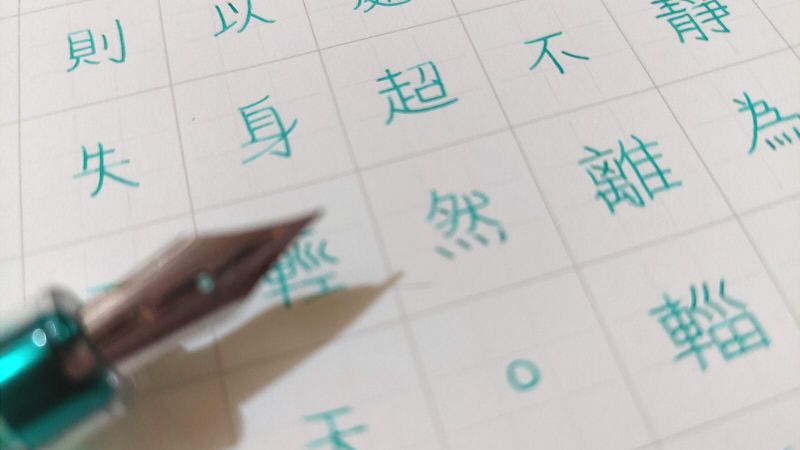 靜為
不離輜
超然。
以身輕天
則失